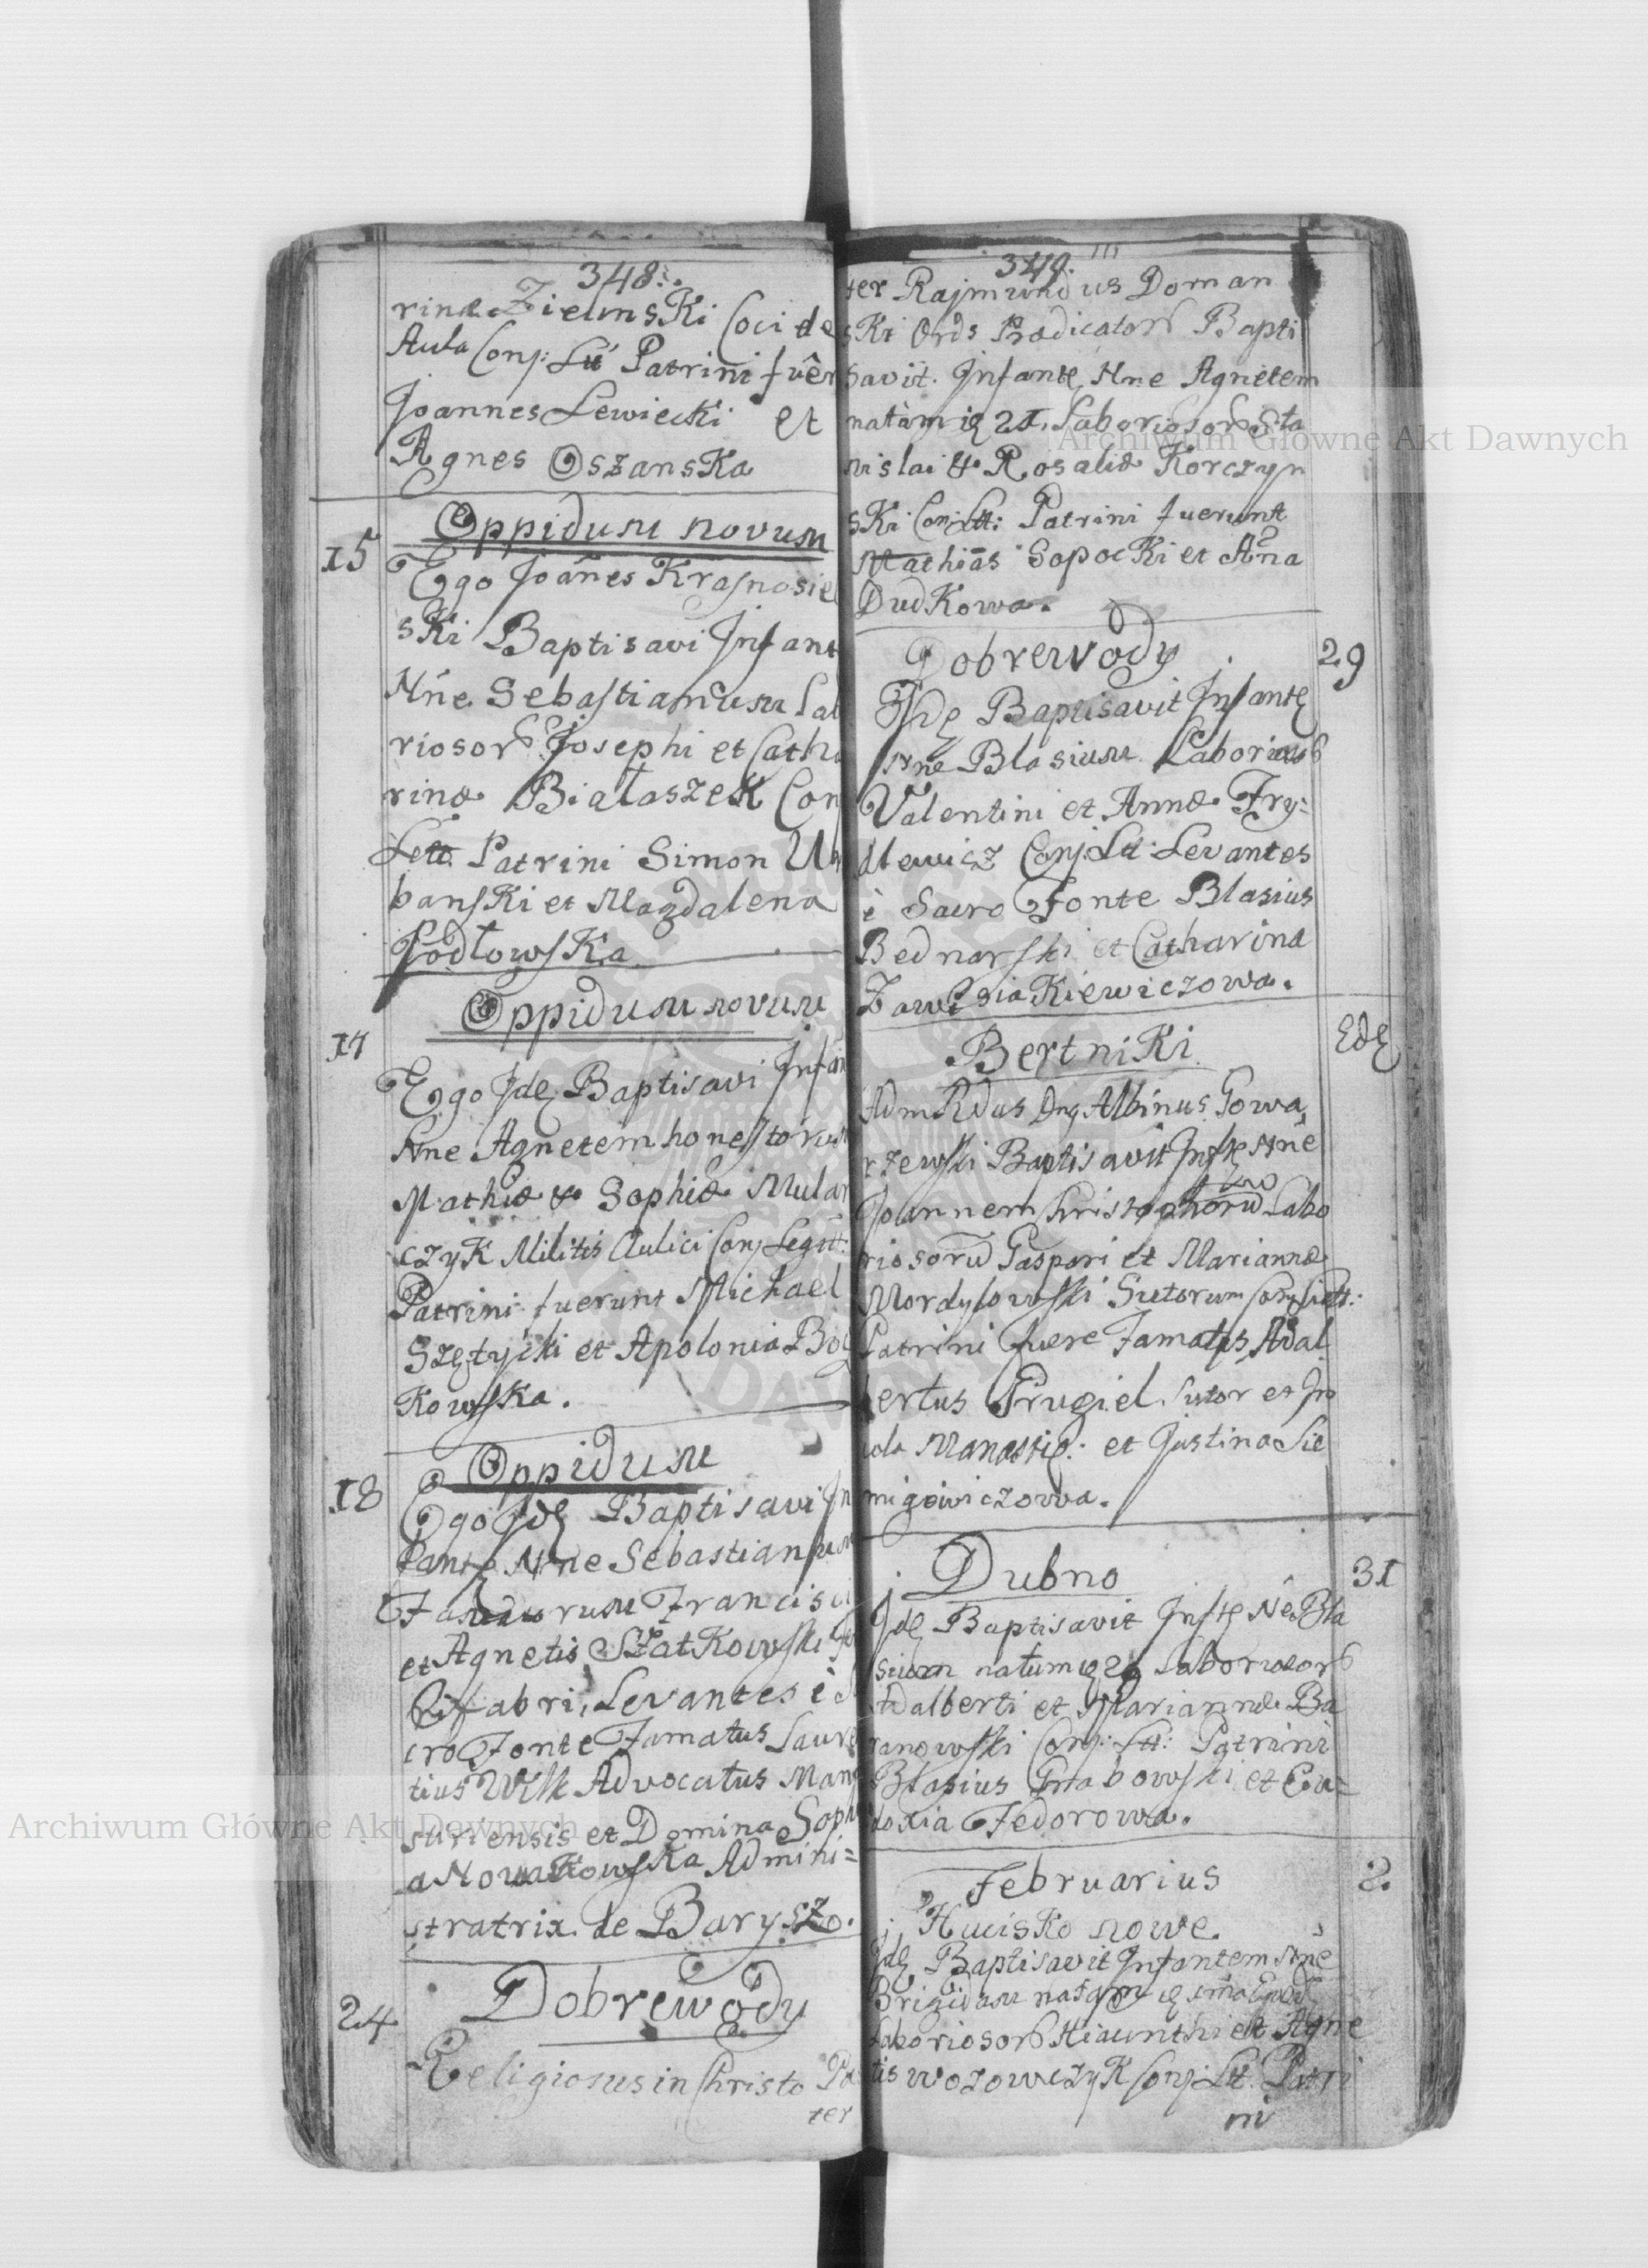 348.
rinæ Zielinski Coci de
Aula Conj: Lit Patrini fuêr
Joannes Lewiecki et
Agnes OszansKa
Oppidum novum
15
Ego Joanes Krasnosiel
sKi Baptisavi Infant
Nne Sebastianum Lab
riosorb Josephi et Catha
rinæ BiałaszeK Con
Lett Patrini Simon Ur
banſKi et Magdalena
PodłowſKa
Oppidum novum
17
Ego Idē Baptisavi Infan
Nne Agnetem honestorum
Mathiæ & Sophiæ Mular
czyK Militis Aulici Conj Legitt:
Patrini fuerunt Michael
Szętycki et Apolonia Bog
KowſKa.
Oppidum
18
Ego Idē Baptisavi In
fantē Nne Sebastianum
Famatorum Francisci
et Agnetis SzatKowſki
fabri, Levantes è Sa
cro Fonte Famatus Laure
tius Advocatus Mana
sturiensis et Domina Soph
a NowaKowſKa Admini=
stratrix de Barysz.
Dobrewody
24
Religiosus in Christo Pa
ter
349.
ter Rajmundus Doman
sKi Ords Prædicatorb Bapti
savit. Infantē Nne Agnetem
natam 21. Laboriosorb Sta
nislai & Rosaliæ Korczyn
sKi Conj Lltt: Patrini fuerunt
Mathias SapocKi et Aña
DudKowa.
Dobrewody
29
Idē Baptisavit Infantē
Nne Blasium Laboriosb
Valentini et Annæ Fry=
dlewicz Conj: Lit: Levantes
è Sacro Fonte Blasius
Bednarſki et Catharina
ZawisiaKiewiczowa.
BertniKi
Edē
Adm Rdus Dnq Albinus Gowa
rzewſki Baptisavit Infē Nne
Joannem Christophorū Labo
riosorū Gaspari et Mariannæ
Mordylowſki Sutorum Conj Litt:
Patrini fuere Famatus Adal
bertus Prugiel Sutor et In
cola Manastiē: et Justina Sie
migowiczowa.
Dubno
31
Idē Baptisavit Infē Nne Bla
sium natum 26 Laboriosorb
Adalberti et Mariannæ Ba
ranowſki Conj: Ltt: Patrini
Blasius Grabowſki et Eu=
doxia Fedorowa.
Februarius
2.
HucisKo nowe.
Idē Baptisavit Infantem Nne
Brigidam natam
Laboriosorb Hiacynthi et Agne
tis WozowczyK Conj: Lit. Patri
ni
Archiwum Główne Akt Dawnych
Archiwum Główne Akt Dawnych